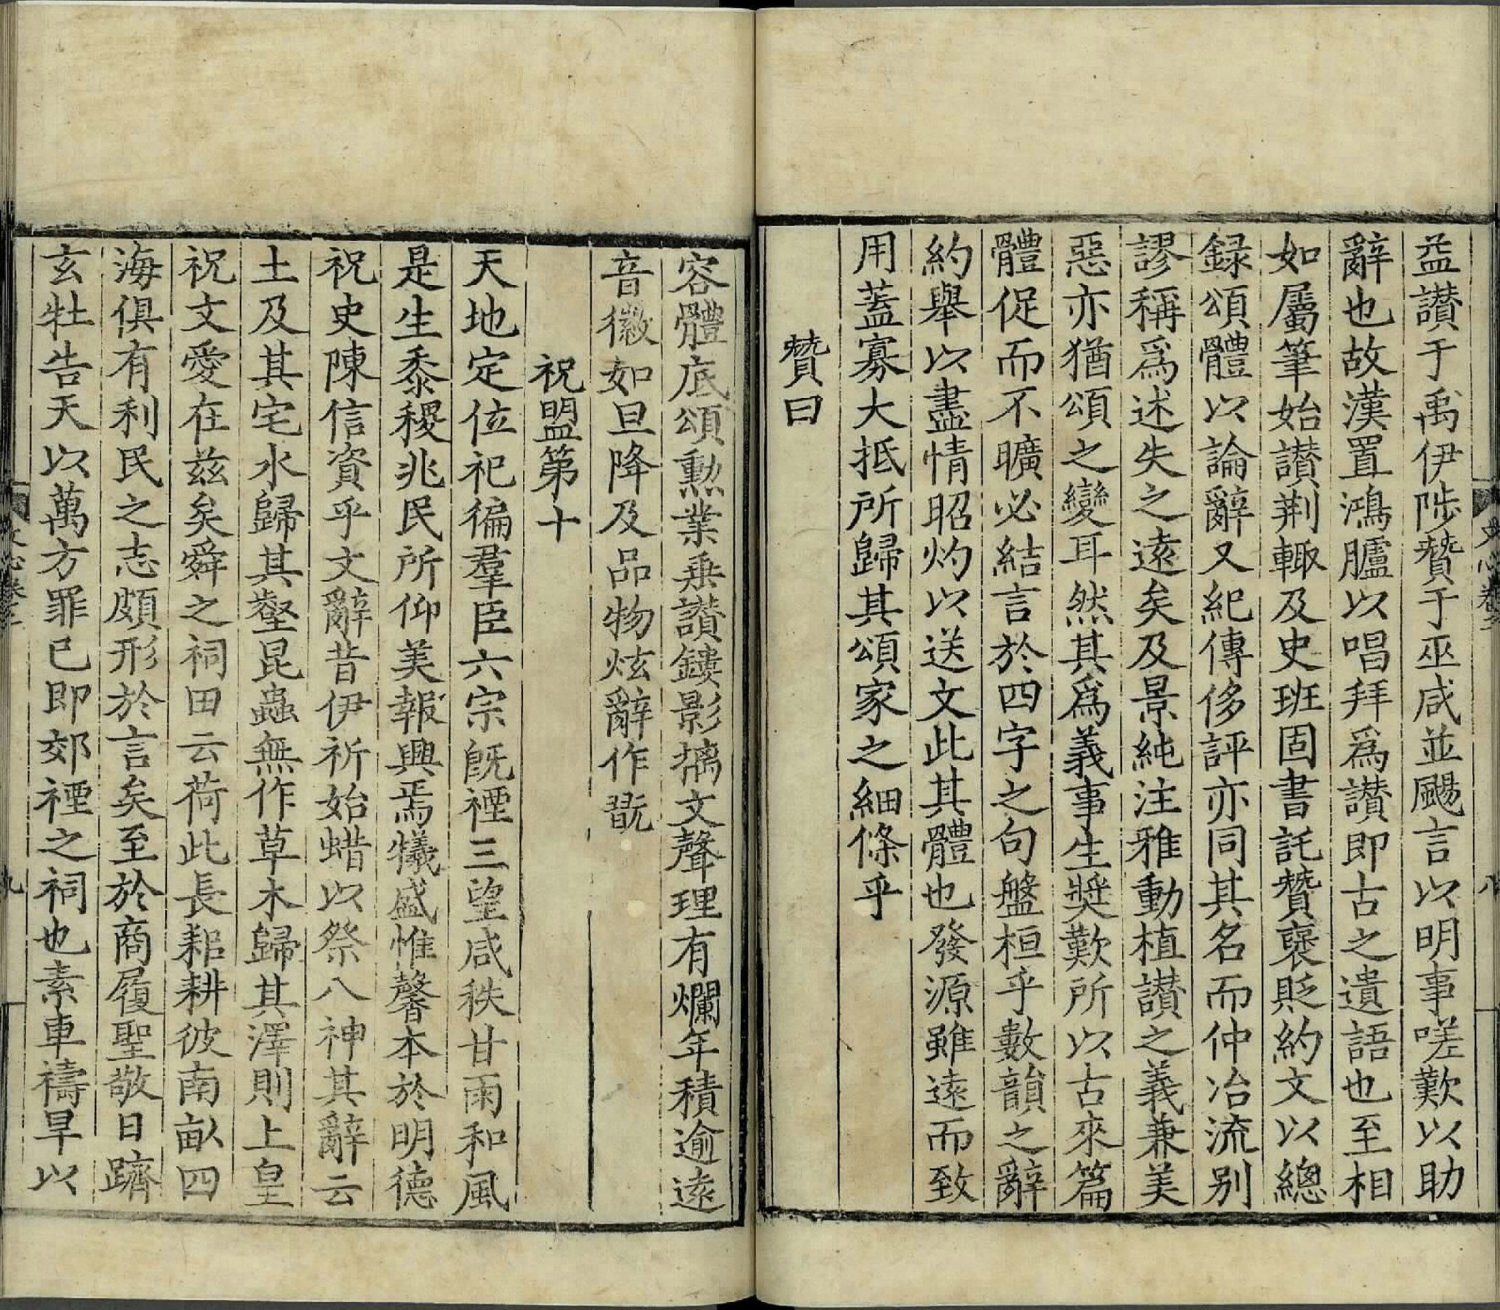 益讃于禹伊陟贊于巫咸並颺言以明事嗟歎以助
辭也故漢置鴻臚以唱拜爲讃即古之遺語也至相
如屬筆始讃荆軻及史班固書託贊襃貶約文以總
録頌體以論辭又紀傳侈評亦同其名而仲冶流别
謬稱爲述失之遠矣及景純注雅動植讃之義兼美
惡亦猶頌之變耳然其爲義事生奬歎所以古來篇
體促而不曠必結言於四字之句盤桓乎數韻之辭
約舉以盡情昭灼以送文此其體也發源雖遠而致
用蓋寡大抵所歸其頌家之細條乎
贊曰
容體底頌勲業乗讃鏤影摛文聲理有爛年積逾遠
音徽如旦降及品物炫辭作翫
祝盟第十
天地定位祀徧羣臣六宗旣禋三望咸秩甘雨和風
是生黍稷兆民所仰美報興焉犧盛惟馨本於明德
祝史陳信資乎文辭昔伊祈始蜡以祭八神其辭云
土及其宅水歸其壑昆蟲無作草木歸其澤則上皇
祝文愛在兹矣舜之祠田云荷此長耜耕彼南畝四
海俱有利民之志頗形於言矣至於商履聖敬日躋
玄牡告天以萬方罪已即郊禋之祠也素車禱旱以
文心卷二
八
九